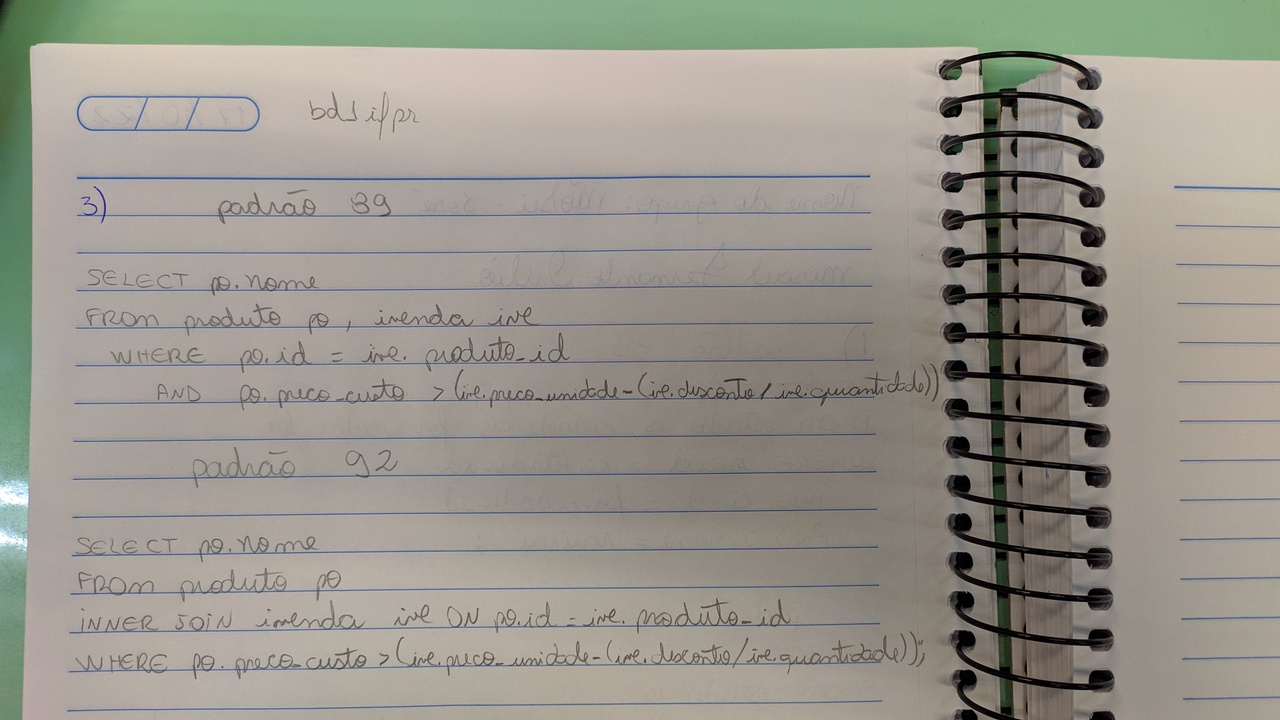 bds ifpr
3) padrão 89
SELECT po.nome
FROM produto po, ivenda ive
WHERE po.id = ive.produto_id
AND po.preco_custo > (ive.preco_unidade - (ive.desconto / ive.quantidade))
padrão 92
SELECT po.nome
FROM produto po
INNER JOIN ivenda ive ON po.id = ive.produto_id
WHERE po.preco_custo > (ive.preco_unidade - (ive.desconto / ive.quantidade));